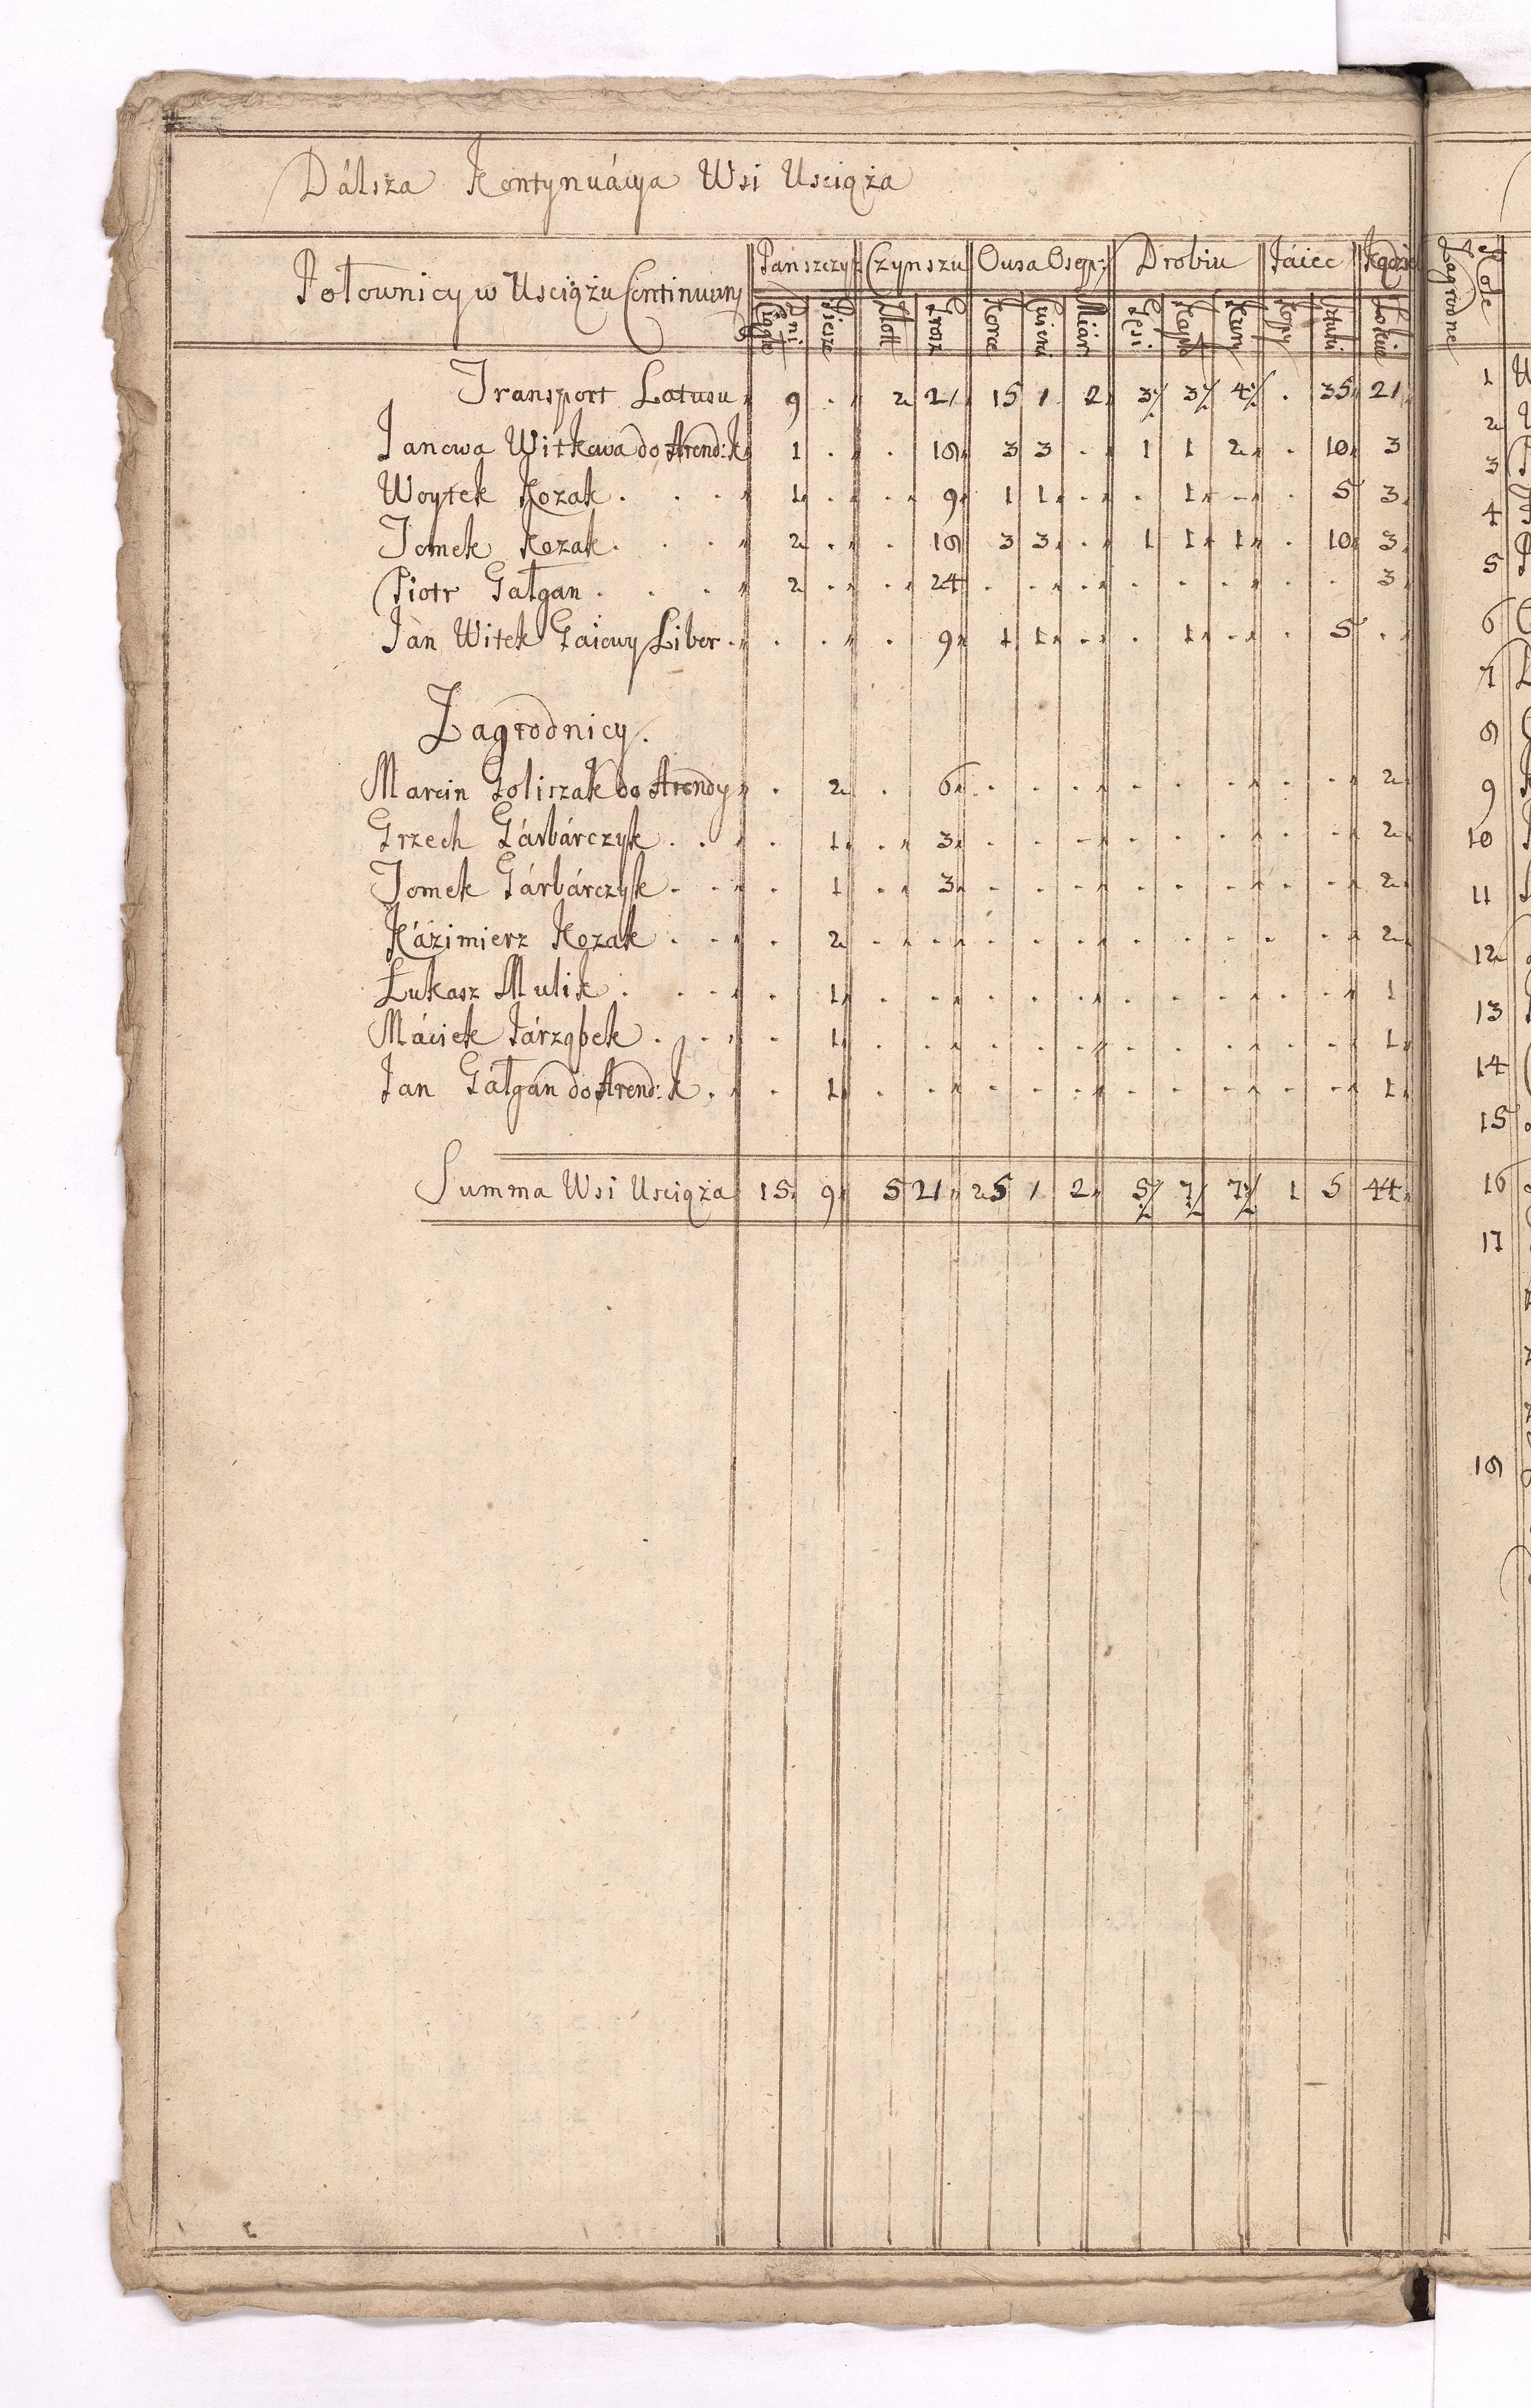 Dálsza Kontynuácya Wsi Usciąża
Połownicy w Usciążu Continuuny Pánszczyz Czynszu Owsa Osep: Drobiu Jáiec Kądzie
Dni Ciągłe Piesze Złott Grosz Korce Cwierci Miár Gęsi Kapł Kury Kopy Sztuki Łokcie
Transport Latusu 9 . 2 21 15 1 2 3½ 3½ 4½ . 35 21
Janowa Witkowa do Arend: K 1 . . 18 3 3 . 1 1 2 . 10 3
Woytek Kozak . . . 1 . . 9 1 1 . . 1 . . 5 3
Tomek Kozak . . . 2 . . 18 3 3 . 1 1 1 . 10 3
Piotr Gałgan . . . 2 . . 24 . . . . . . . . 3
Jan Witek Gaiowy Liber . . . . 9 1 1 . . 1 . . 5 .
Zagrodnicy.
Marcin Goliszak do Arendy . 2 . 6 . . . . . . . . 2
Grzech Gárbárczyk . . . 1 . 3 . . . . . . . . 2
Tomek Gárbárczyk . . . 1 . 3 . . . . . . . . 2
Kázimierz Kozak . . . 2 . . . . . . . . . . 2
Łukasz Mulik . . . 1 . . . . . . . . . . 1
Máciek Járząbek . . . 1 . . . . . . . . . . 1
Jan Gáłgan do Arend: K . . 1 . . . . . . . . . . 1
Summa Wsi Usciąża 15 9 5 21 25 1 2 5½ 7½ 7½ 1 5 44
Zagrodne Role
1
2
3
4
5
6
7
8
9
10
11
12
13
14
15
16
17
18